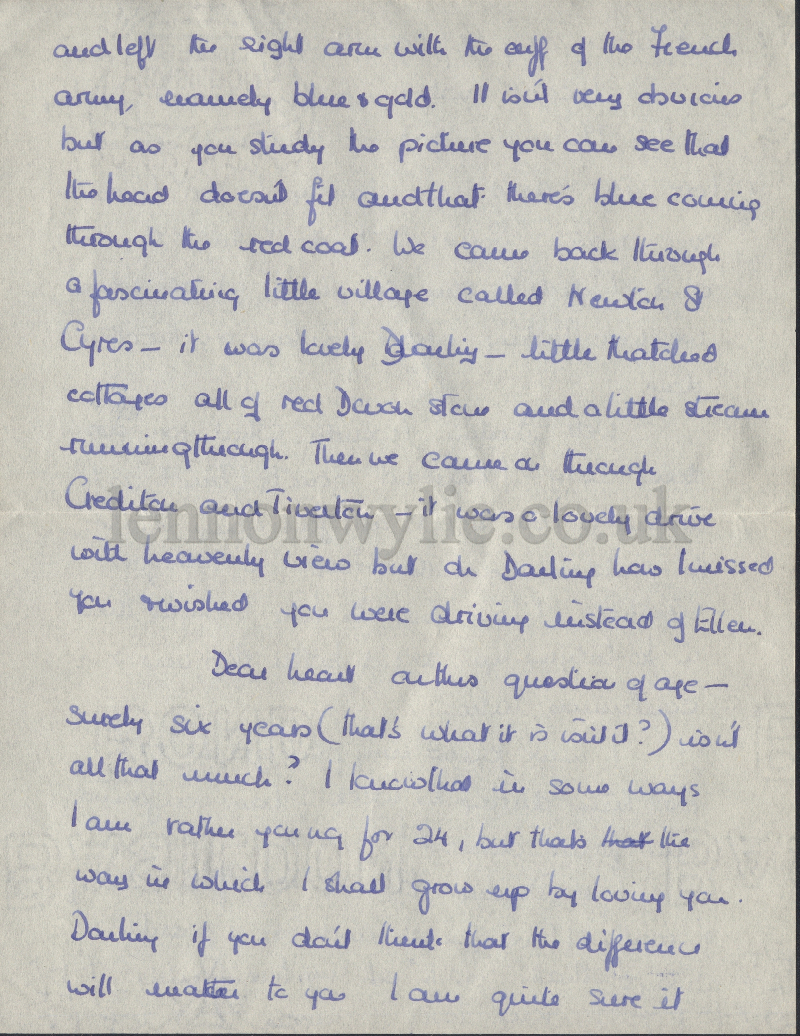 and left the right arm with the cuff of the French
army, namely blue & gold. It isn't very obvious
but as you study the picture you can see that
the head doesn't fit and that there's blue coming
through the red coat. We came back through
a fascinating little village called Newton St
Cyres – it was lovely Darling – little thatched
cottages all of red Devon stone and a little stream
running through. Then we came on through
Crediton and Tiverton – it was a lovely drive
with heavenly views but oh Darling how I missed
you & wished you were driving instead of Ellen.
Dear heart on this question of age –
surely six years (that's what it is isn't it?) isn't
all that much? I know that in some ways
I am rather young for 24, but that's that the
way in which I shall grow up by loving you.
Darling if you don't think that the difference
will matter to you I am quite sure it
lennonwylie.co.uk